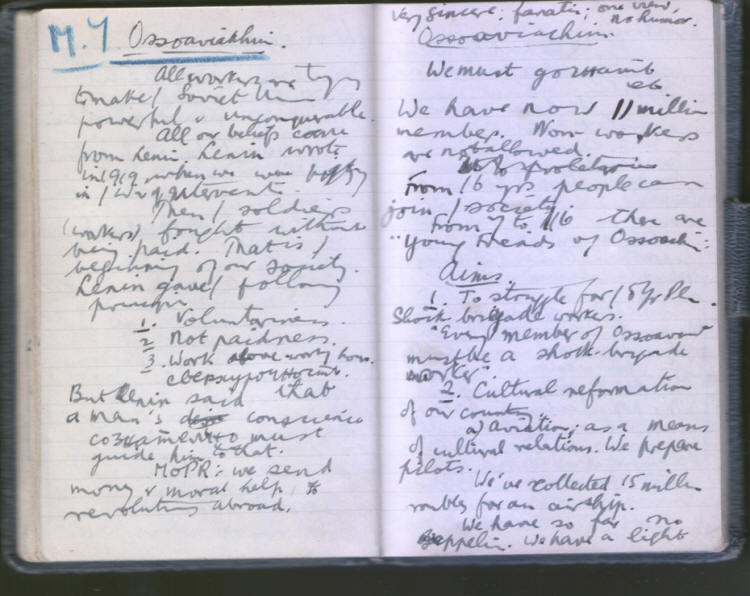 M.7 Ossoaviakhim.
All workers are trying
to make / Soviet Union
powerful & unconquerable.
All our beliefs come
from Lenin. Lenin wrote
in 1919, when we were fighting
in / war of intervent.
Then / soldiers
(workers) fought without
being paid. That is /
beginning of our society.
Lenin gave / following
principles
1. Voluntariness.
2 Not paidness.
3. Work above working hours.
сверхурочно
But Lenin said that
a man's conscience
must
guide him to that.
MOPR: we send
money & moral help to
revolutions abroad.
very sincere; fanatic; one view,
no humor.
Ossoaviachim.
We must
etc.
We have now 11 million
members. Non workers
are not allowed.
to proletarian
From 16 yrs people can
join / society.
From 9 to 16 there are
"Young Friends of Ossoachi":
Aims.
1. To struggle for / 5 Yr Plan.
Shock brigade workers.
"Every member of Ossoavia
must be a shock-brigade
worker"
2. Cultural reformation
of our country
a) Aviation; as a means
of cultural relations. We prepare
pilots.
We've collected 15 million
roubles for an airship.
We have so far no
Zeppelin. We have a light